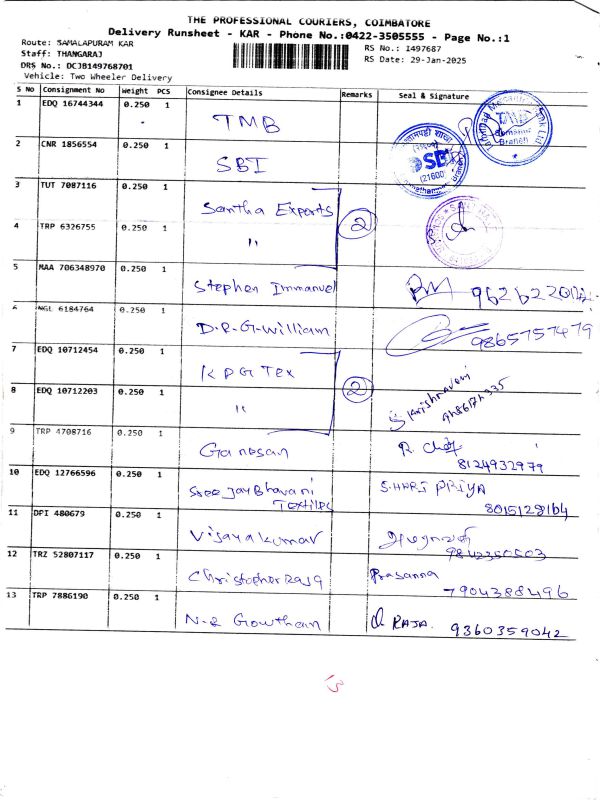 THE PROFESSIONAL COURIERS, COIMBATORE
Delivery Runsheet - KAR - Phone No.:0422-3505555 - Page No.:1
Route: SAMALAPURAM KAR
RS No.: 1497687
Staff: THANGARAJ
RS Date: 29-Jan-2025
DRS No.: DCJB149768701
Vehicle: Two Wheeler Delivery
S No Consignment No Weight PCS Consignee Details Remarks Seal & Signature
1 EDQ 16744344 0.250 1 TMB TMB Branch
2 CNR 1856554 0.250 1 SBI SBI
3 TUT 7087116 0.250 1 Santha Exports 2
4 TRP 6326755 0.250 1 "
5 MAA 706348970 0.250 1 Stephen Immanuel
6 NGL 6184764 0.250 1 D.R.G.William 9865757479
7 EDQ 10712454 0.250 1 KPG Tex 2
8 EDQ 10712203 0.250 1 " Krishnaveni
9 TRP 4708716 0.250 1 Ganesan 8124932979
10 EDQ 12766596 0.250 1 Sree Jay Bhavani Textiles S.HARI PRIYA 8015128164
11 DPI 480679 0.250 1 Vijayakumar
12 TRZ 52807117 0.250 1 Christopher Raja Prasanna 7904388496
13 TRP 7886190 0.250 1 N.S Gowtham RAJA. 9360359042
13